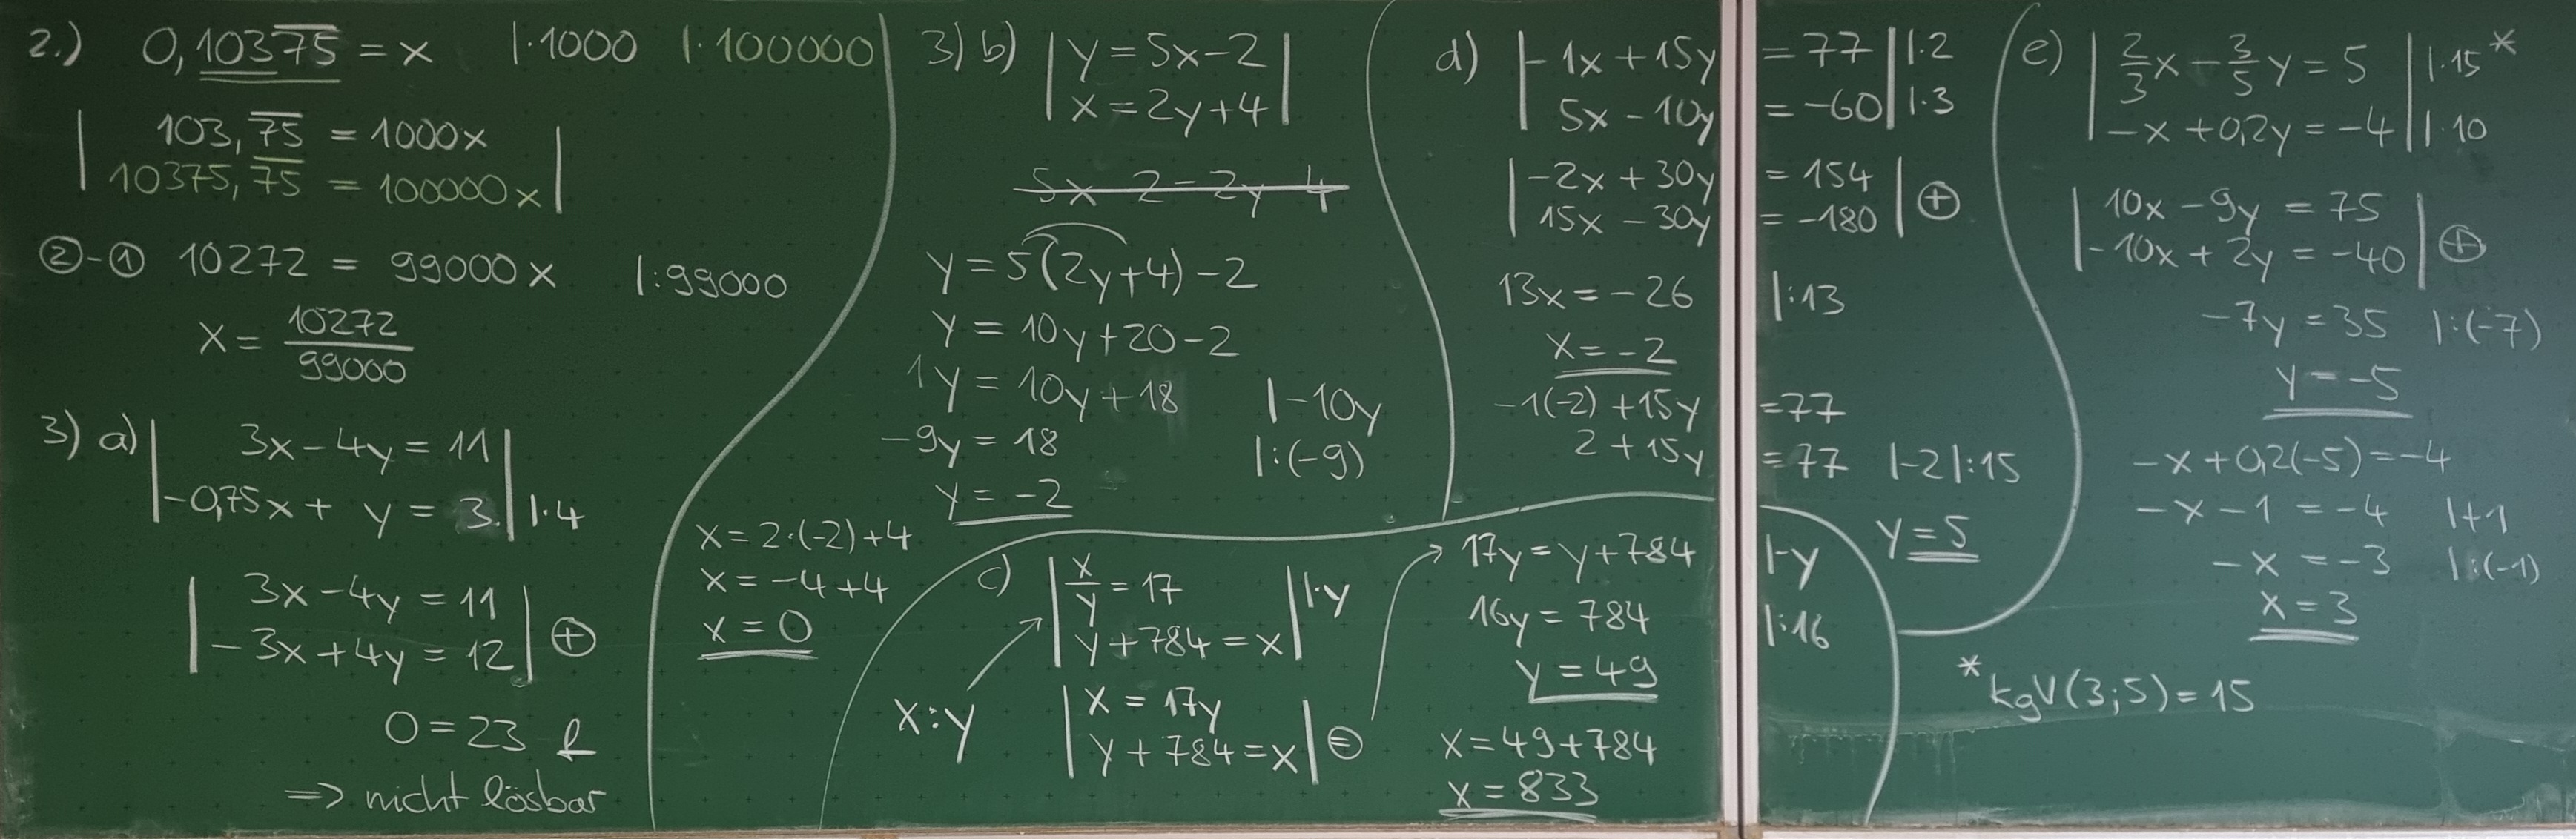 2.) 0,103\overline{75} = x |·1000 |·100000
103,\overline{75} = 1000x
10375,\overline{75} = 100000x
②-① 10272 = 99000x |:99000
x = 10272/99000
3) a) 3x - 4y = 11
-0,75x + y = 3. |·4
3x - 4y = 11
-3x + 4y = 12 ⊕
0 = 23 ↯
=> nicht lösbar
3) b) y = 5x - 2
x = 2y + 4
5x - 2 = 2y 4
y = 5(2y+4) - 2
y = 10y + 20 - 2
1y = 10y + 18 |-10y
-9y = 18 |:(-9)
y = -2
x = 2·(-2) + 4
x = -4 + 4
x = 0
c) x/y = 17 |·y
y + 784 = x
x:y
x = 17y
y + 784 = x ⊜
17y = y + 784 |-y
16y = 784 |:16
y = 49
x = 49 + 784
x = 833
d) -1x + 15y = 77 |·2
5x - 10y = -60 |·3
-2x + 30y = 154
15x - 30y = -180 ⊕
13x = -26 |:13
x = -2
-1(-2) + 15y = 77
2 + 15y = 77 |-2|:15
y = 5
e) 2/3x - 3/5y = 5 |·15*
-x + 0,2y = -4 |·10
10x - 9y = 75
-10x + 2y = -40 ⊕
-7y = 35 |:(-7)
y = -5
-x + 0,2(-5) = -4
-x - 1 = -4 |+1
-x = -3 |:(-1)
x = 3
* kgV(3;5) = 15